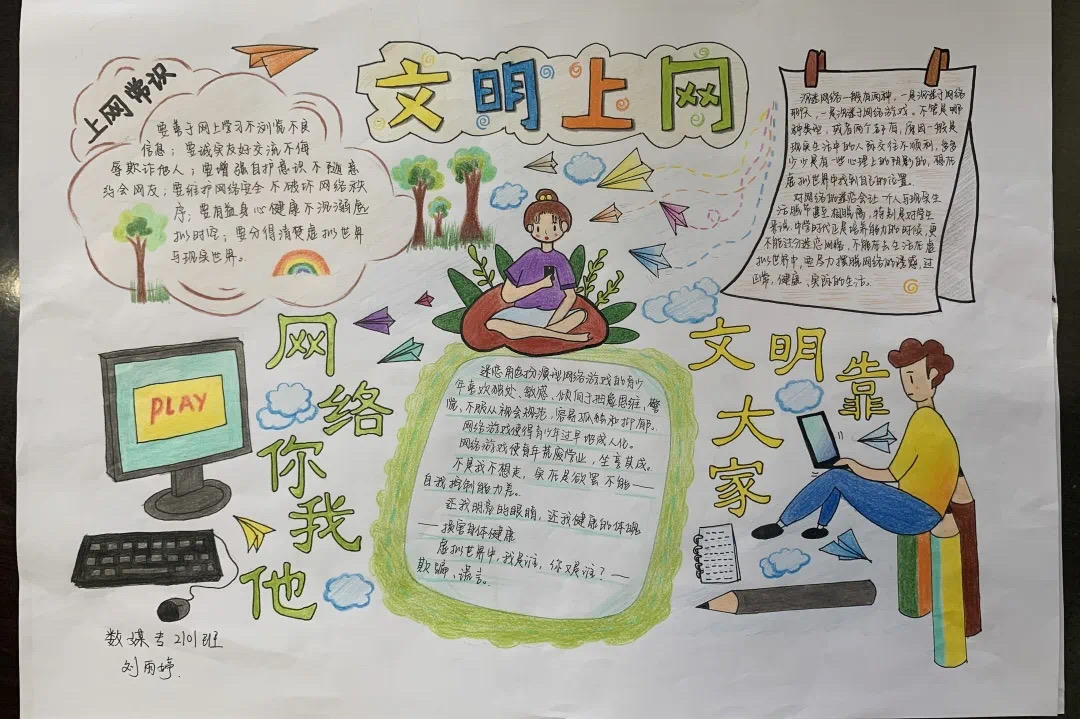 文明上网
上网常识
要善于网上学习不浏览不良
信息；要诚实友好交流不侮
辱欺诈他人；要增强自护意识不随意
约会网友；要维护网络安全不破坏网络秩
序；要有益身心健康不沉溺虚
拟时空；要分得清楚虚拟世界
与现实世界。
沉迷网络一般有两种，一是沉迷于网络
聊天，一是沉迷于网络游戏。不管是哪
种类型，或者两个都有，原因一般是
现实生活中的人际交往不顺利，多多
少少是有一些心理上的阴影的，想在
虚拟世界中找到自己的位置。
对网络的迷恋会让一个人与现实生
活脱节甚至相隔离，特别是对学生
来说，中学时代正是培养能力的时候，更
不能过分迷恋网络，不能总去生活在虚
拟世界中，要尽力摆脱网络的诱惑，过
正常、健康、实际的生活。
网络你我他
文明靠大家
PLAY
迷恋角色扮演型网络游戏的青少
年喜欢独处、敏感、倾向于抽象思维、警
觉、不服从社会规范，容易孤独和抑郁。
网络游戏使得青少年过早地成人化。
网络游戏使青年荒废学业，生事成。
不是我不想走，实在是欲罢不能——
自我控制能力差。
还我明亮的眼睛，还我健康的体魄
——损害身体健康
虚拟世界中，我是谁，你又是谁？——
欺骗、谎言。
数媒专2101班
刘雨婷